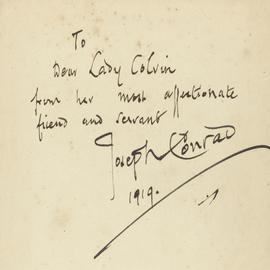 To
Dear Lady Colvin
from her most affectionate
friend and servant
Joseph Conrad
1919.